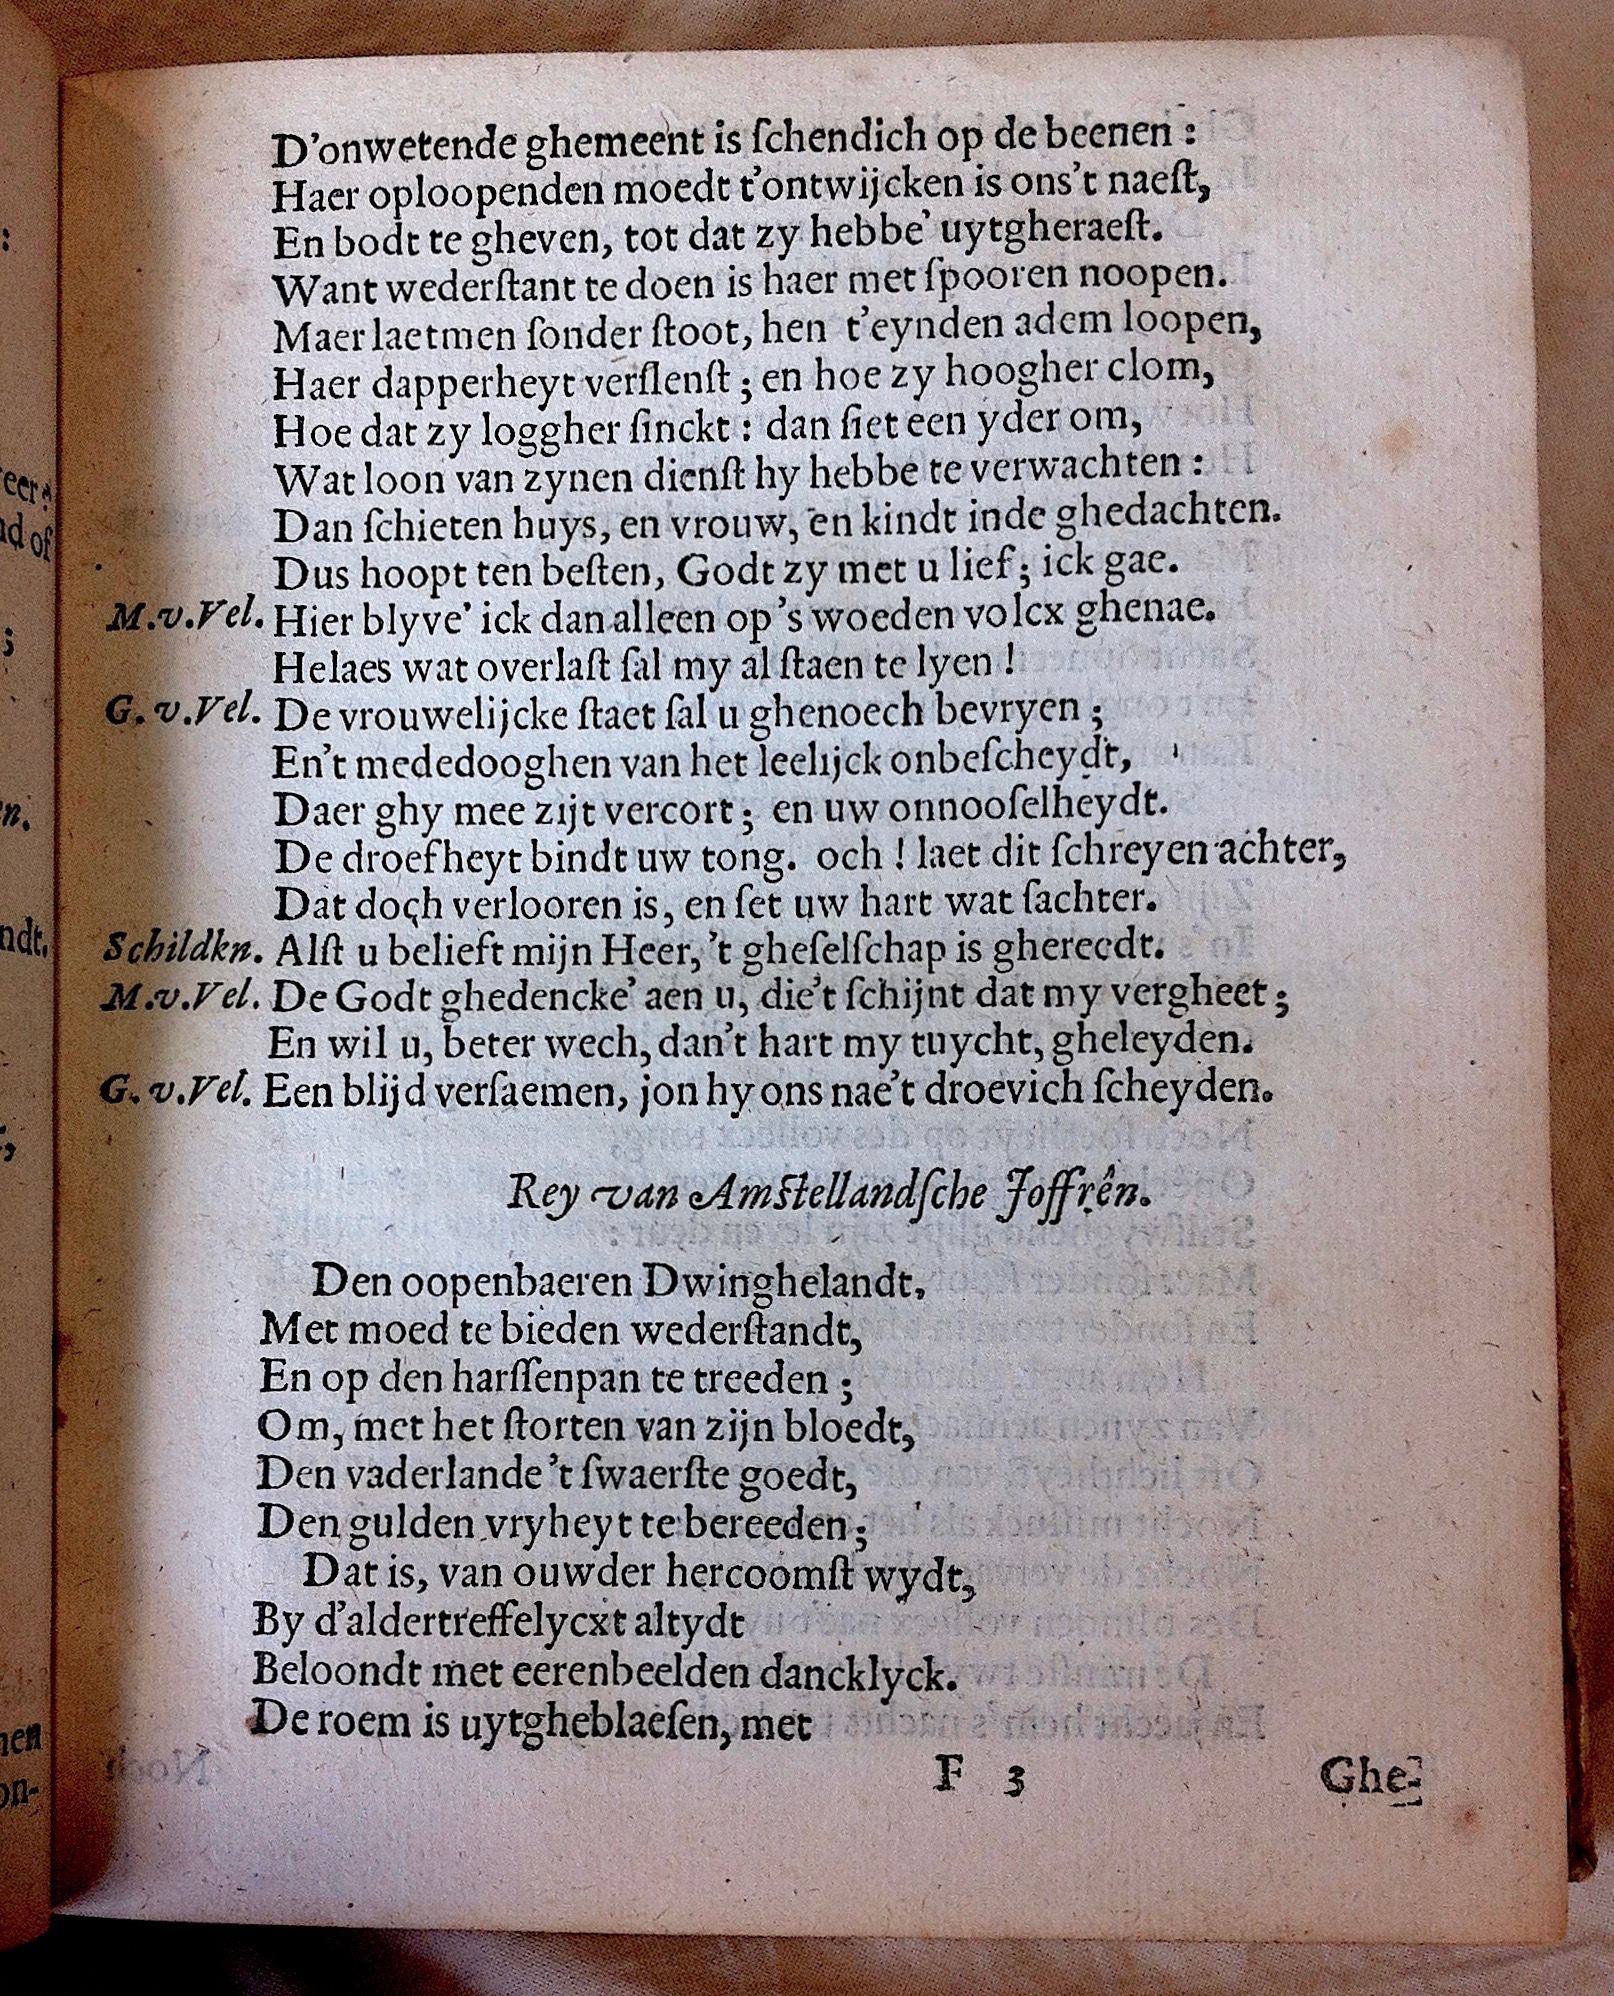 D'onwetende ghemeent is ſchendich op de beenen :
Haer oploopenden moedt t'ontwijcken is ons't naeſt,
En bodt te gheven, tot dat zy hebbe' uytgheraeſt.
Want wederſtant te doen is haer met ſpooren noopen.
Maer laetmen ſonder ſtoot, hen t'eynden adem loopen,
Haer dapperheyt verſlenſt ; en hoe zy hoogher clom,
Hoe dat zy loggher ſinckt : dan ſiet een yder om,
Wat loon van zynen dienſt hy hebbe te verwachten :
Dan ſchieten huys, en vrouw, en kindt inde ghedachten.
Dus hoopt ten beſten, Godt zy met u lief ; ick gae.
M.v.Vel. Hier blyve' ick dan alleen op 's woeden volcx ghenae.
Helaes wat overlaſt ſal my al ſtaen te lyen !
G. v.Vel. De vrouwelijcke ſtaet ſal u ghenoech bevryen ;
En't mededooghen van het leelijck onbeſcheydt,
Daer ghy mee zijt vercort ; en uw onnooſelheydt.
De droefheyt bindt uw tong. och ! laet dit ſchreyen achter,
Dat doch verlooren is, en ſet uw hart wat ſachter.
Schildkn. Alſt u belieft mijn Heer, 't gheſelſchap is ghereedt.
M.v.Vel. De Godt ghedencke' aen u, die't ſchijnt dat my vergheet ;
En wil u, beter wech, dan't hart my tuycht, gheleyden.
G. v.Vel. Een blijd verſaemen, jon hy ons nae't droevich ſcheyden.
Rey van Amſtellandſche Joffrên.
Den oopenbaeren Dwinghelandt,
Met moed te bieden wederſtandt,
En op den harſſenpan te treeden ;
Om, met het ſtorten van zijn bloedt,
Den vaderlande 't ſwaerſte goedt,
Den gulden vryheyt te bereeden ;
Dat is, van ouwder hercoomſt wydt,
By d'aldertreffelycxt altydt
Beloondt met eerenbeelden dancklyck.
De roem is uytgheblaeſen, met
F 3 Ghe-